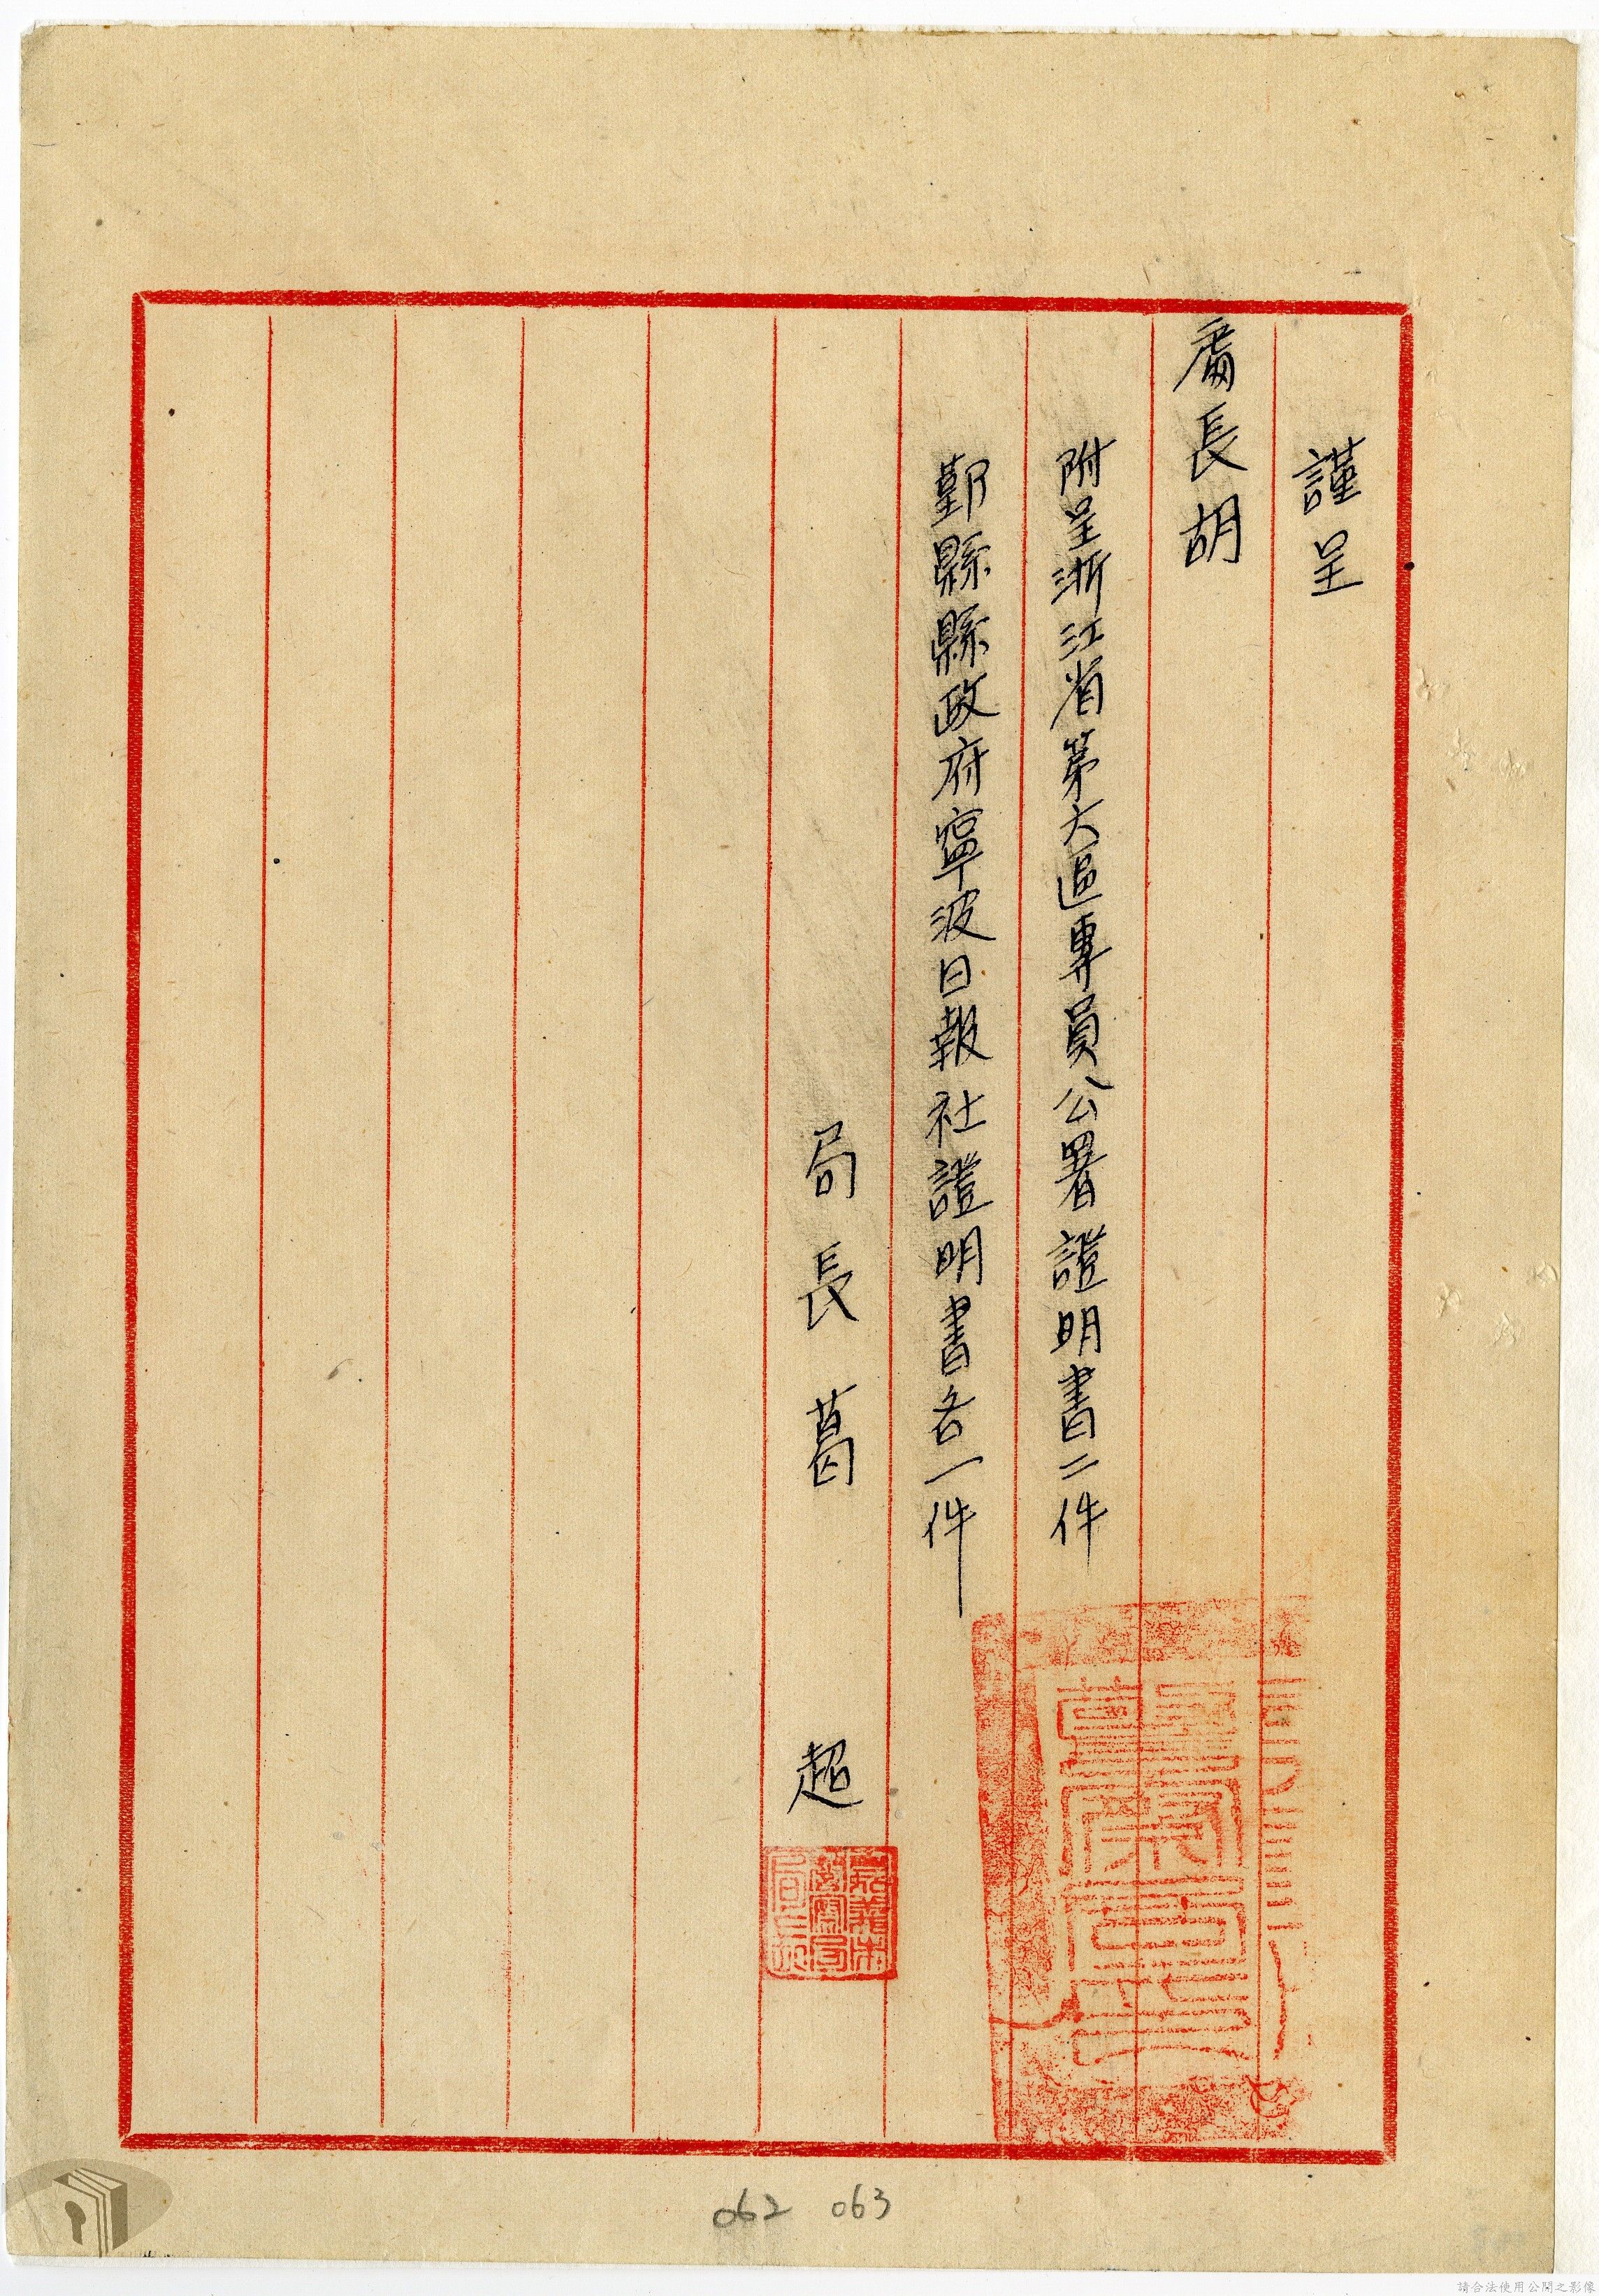 謹呈
處長胡
附呈浙江省第六區專員公署證明書二件
鄞縣縣政府寧波日報社證明書各一件
局長葛超
嘉義市警察局局長章
062 063
請合法使用公開之影像